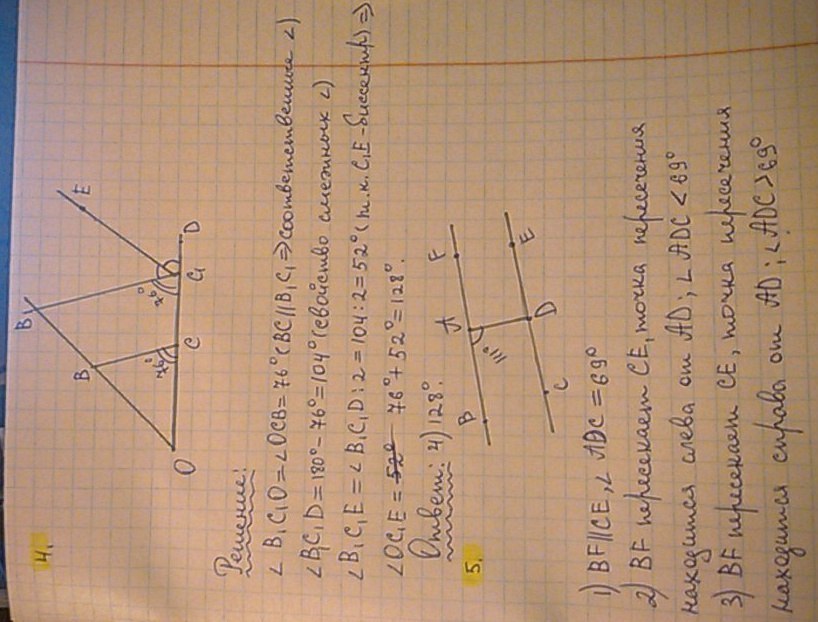 4.
B
B
E
76°
76°
O
C
C₁
D
Решение:
∠ B₁C₁O = ∠OCB = 76° (BC || B₁C₁ ⇒ соответственные ∠)
∠B₁C₁D = 180° - 76° = 104° (свойство смежных ∠)
∠B₁C₁E = ∠B₁C₁D : 2 = 104 : 2 = 52° (т.к. C₁E - биссектр) ⇒
∠OC₁E = 52° 76° + 52° = 128°.
Ответ: 4) 128°.
5.
B
A
F
111°
C
D
E
1) BF || CE, ∠ ADC = 69°
2) BF пересекает CE, точка пересечения
находится слева от AD; ∠ ADC < 69°
3) BF пересекает CE, точка пересечения
находится справа от AD; ∠ ADC > 69°